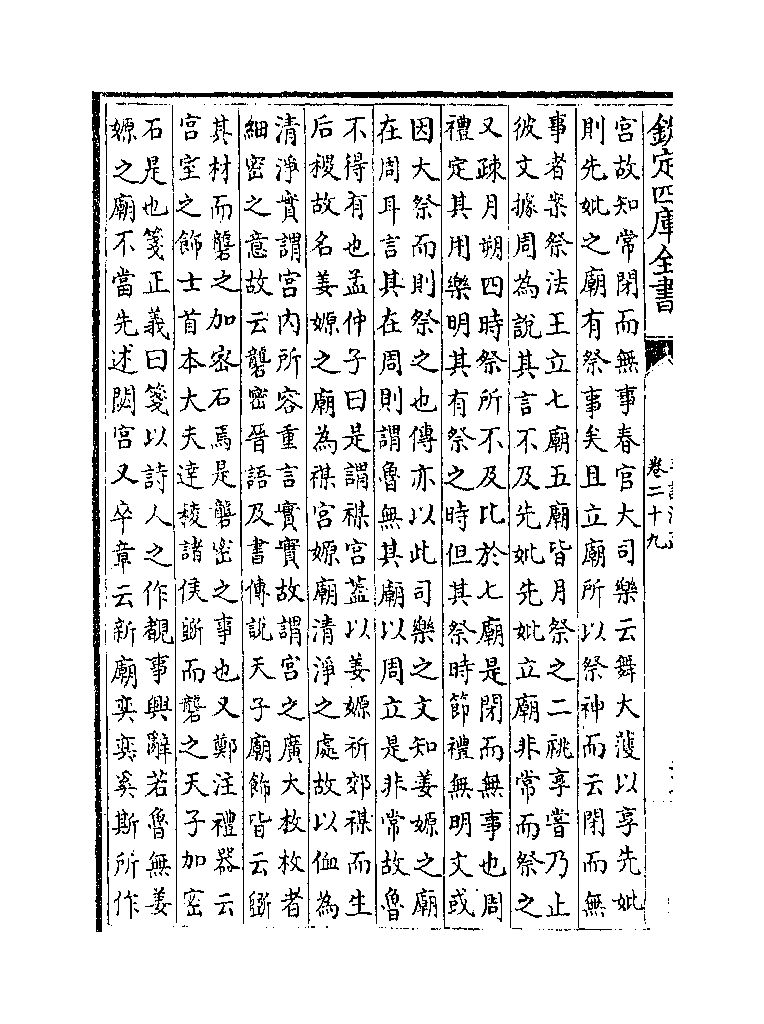 欽定四庫全書
卷二十九
宮故知常閉而無事春官大司樂云舞大濩以享先妣
則先妣之廟有祭事矣且立廟所以祭神而云閉而無
事者案祭法王立七廟五廟皆月祭之二祧享嘗乃止
彼文據周為說其言不及先妣先妣立廟非常而祭之
又疎月朔四時祭所不及比於七廟是閉而無事也周
禮定其用樂明其有祭之時但其祭時節禮無明文或
因大祭而則祭之也傳亦以此司樂之文知姜嫄之廟
在周耳言其在周則謂魯無其廟以周立是非常故魯
不得有也孟仲子曰是謂禖宮蓋以姜嫄祈郊禖而生
后稷故名姜嫄之廟為禖宮嫄廟清淨之處故以侐為
清淨實謂宮內所容重言實實故謂宮之廣大枚枚者
細密之意故云礱密晉語及書傳說天子廟飾皆云斵
其材而礱之加密石焉是礱密之事也又鄭注禮器云
宮室之飾士首本大夫達稜諸侯斵而礱之天子加密
石是也箋正義曰箋以詩人之作覩事興辭若魯無姜
嫄之廟不當先述閟宮又卒章云新廟奕奕奚斯所作